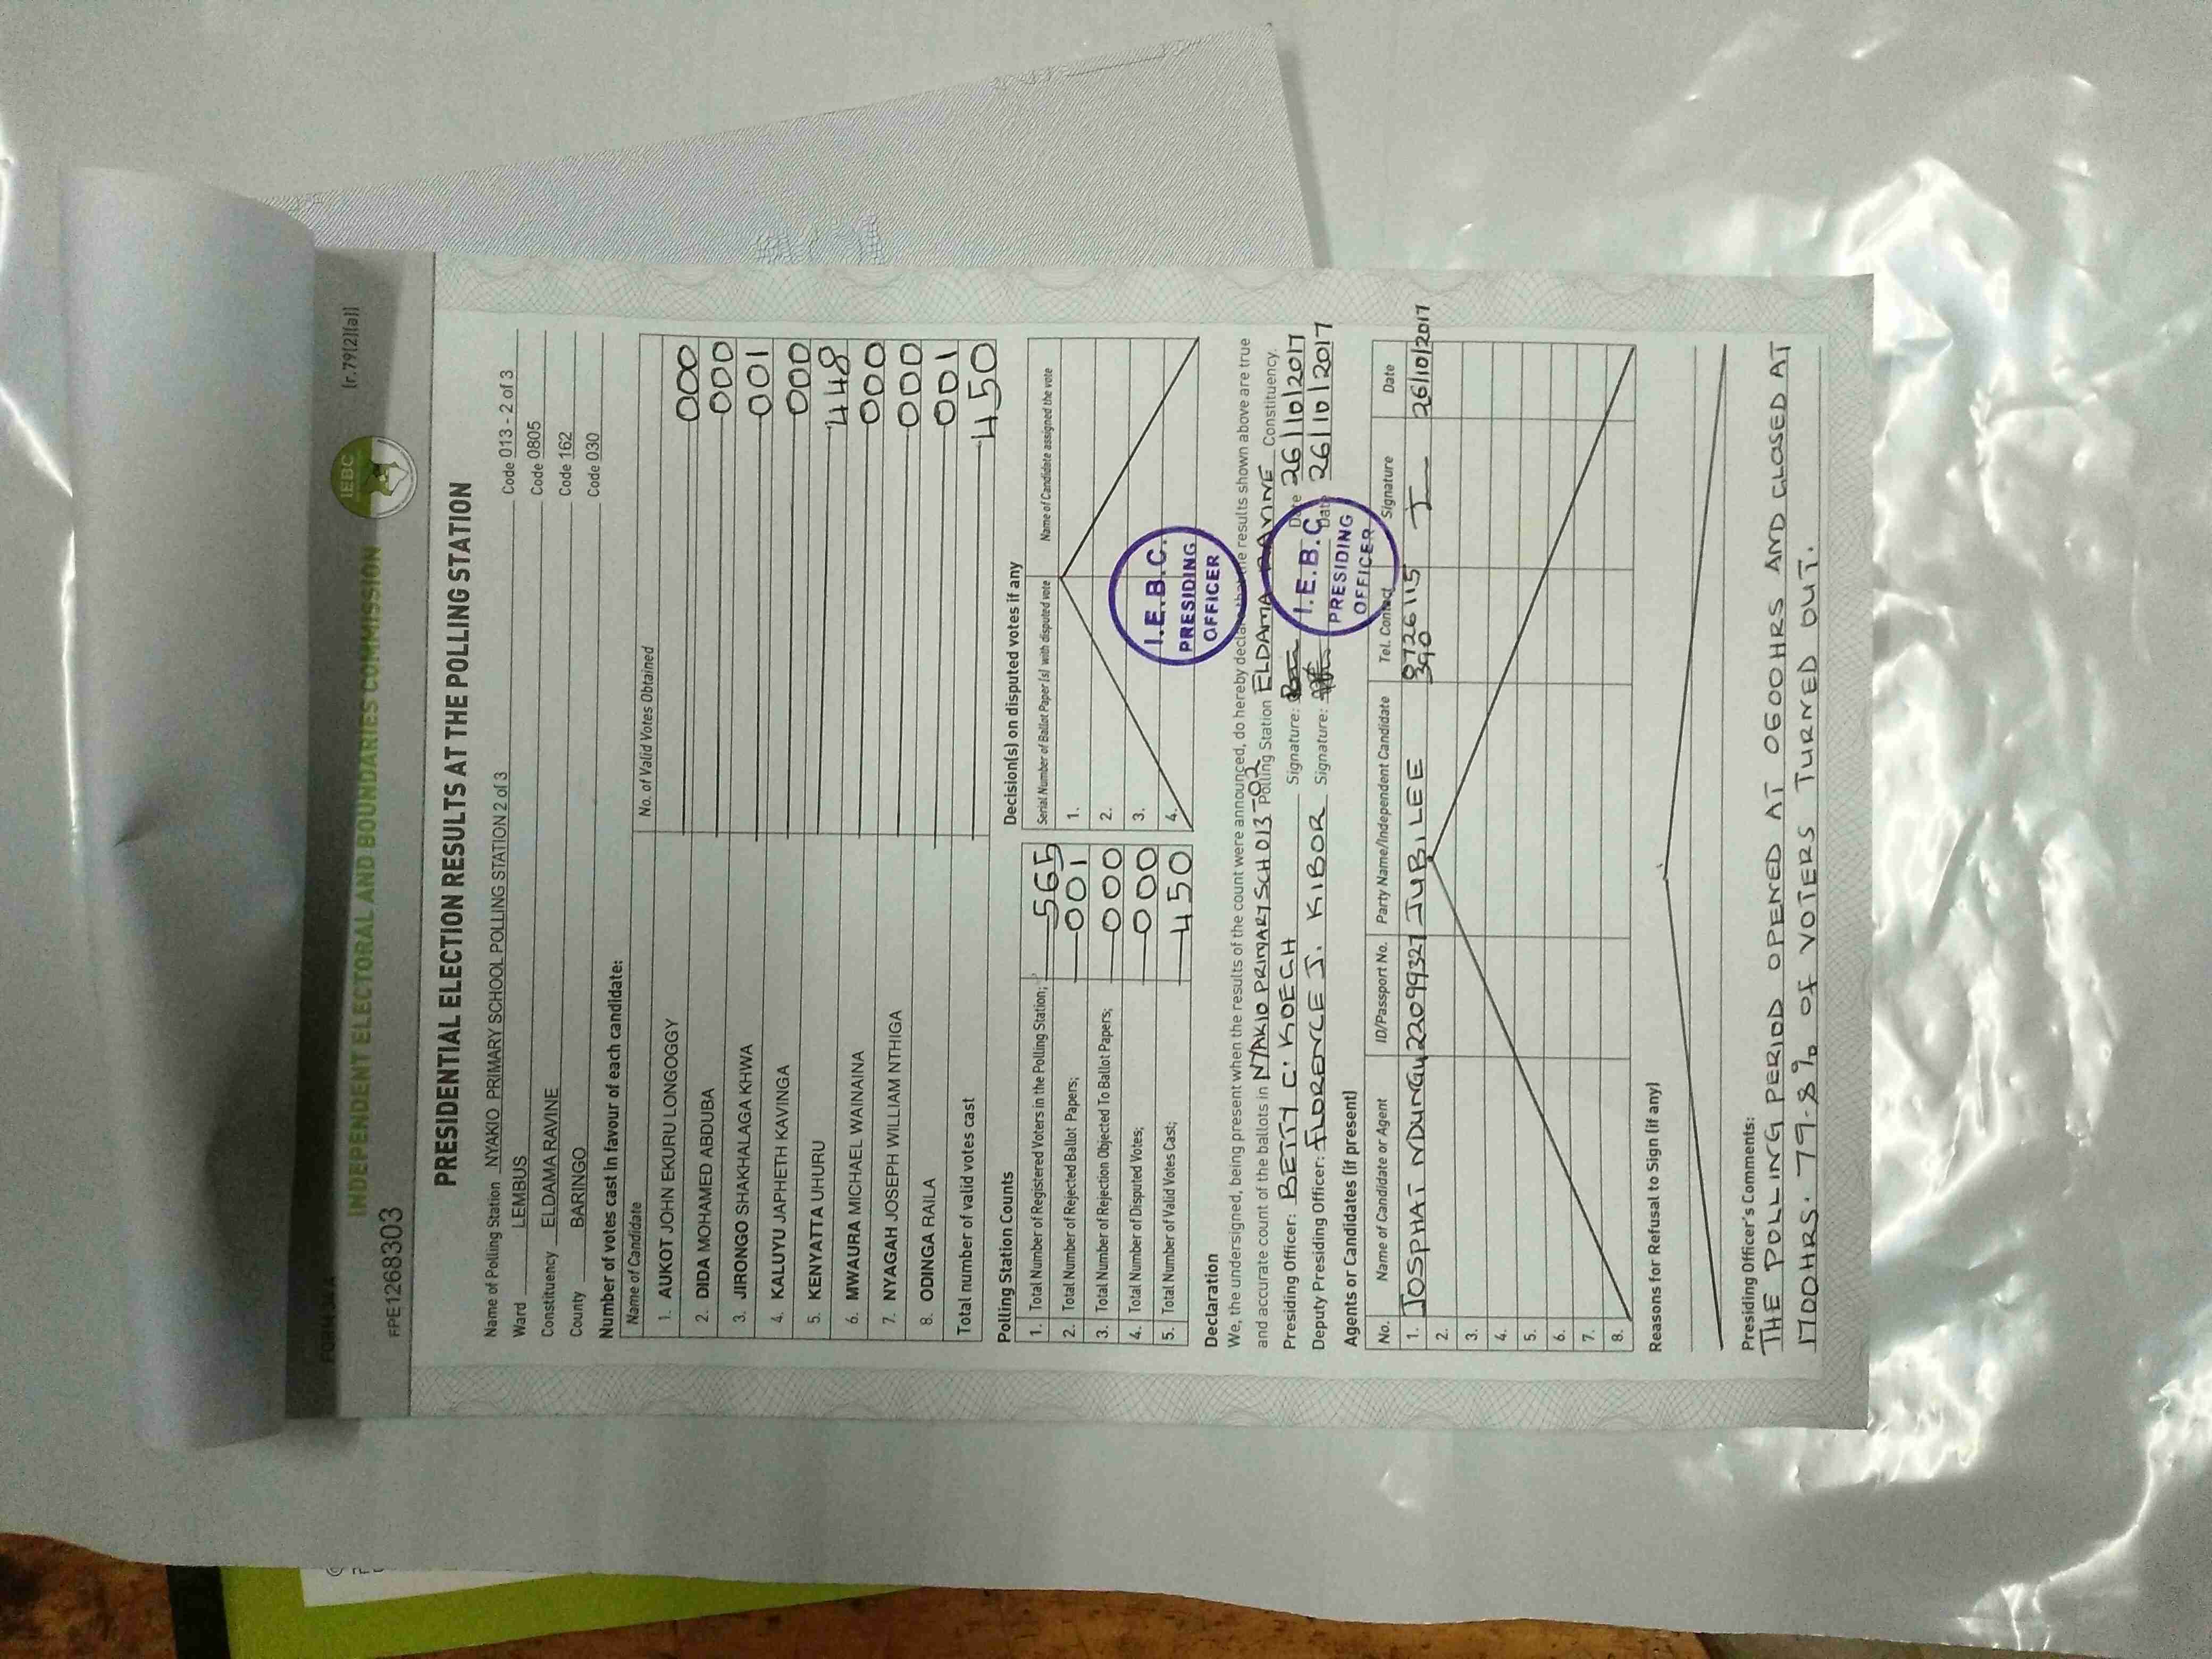 FORM 34A (r.79(2)(a))
INDEPENDENT ELECTORAL AND BOUNDARIES COMMISSION IEBC
FPE1268303
PRESIDENTIAL ELECTION RESULTS AT THE POLLING STATION
Name of Polling Station NYAKIO PRIMARY SCHOOL POLLING STATION 2 of 3 Code 013 - 2 of 3
Ward LEMBUS Code 0805
Constituency ELDAMA RAVINE Code 162
County BARINGO Code 030
Number of votes cast in favour of each candidate:
Name of Candidate No. of Valid Votes Obtained
1. AUKOT JOHN EKURU LONGOGGY 000
2. DIDA MOHAMED ABDUBA 000
3. JIRONGO SHAKHALAGA KHWA 001
4. KALUYU JAPHETH KAVINGA 000
5. KENYATTA UHURU 448
6. MWAURA MICHAEL WAINAINA 000
7. NYAGAH JOSEPH WILLIAM NTHIGA 000
8. ODINGA RAILA 001
Total number of valid votes cast 450
Polling Station Counts
1. Total Number of Registered Voters in the Polling Station; 565
2. Total Number of Rejected Ballot Papers; 001
3. Total Number of Rejection Objected To Ballot Papers; 000
4. Total Number of Disputed Votes; 000
5. Total Number of Valid Votes Cast; 450
Decision(s) on disputed votes if any
Serial Number of Ballot Paper (s) with disputed vote Name of Candidate assigned the vote
1.
2.
3.
4.
I.E.B.C.
PRESIDING
OFFICER
Declaration
We, the undersigned, being present when the results of the count were announced, do hereby declare that the results shown above are true
and accurate count of the ballots in NYAKIO PRIMARY SCH 013-02 Polling Station ELDAMA RAVINE Constituency.
Presiding Officer: BETTY C. KOECH Signature: Date 26/10/2017
Deputy Presiding Officer: FLORENCE J. KIBOR Signature: Date 26/10/2017
I.E.B.C.
PRESIDING
OFFICER
Agents or Candidates (if present)
No. Name of Candidate or Agent ID/Passport No. Party Name/Independent Candidate Tel. Contact Signature Date
1. JOSPHAT NDUNGU 22099321 JUBILEE 0726115 390 26/10/2017
2.
3.
4.
5.
6.
7.
8.
Reasons for Refusal to Sign (if any)
Presiding Officer's Comments:
THE POLLING PERIOD OPENED AT 0600HRS AND CLOSED AT
1700HRS. 79.8% OF VOTERS TURNED OUT.